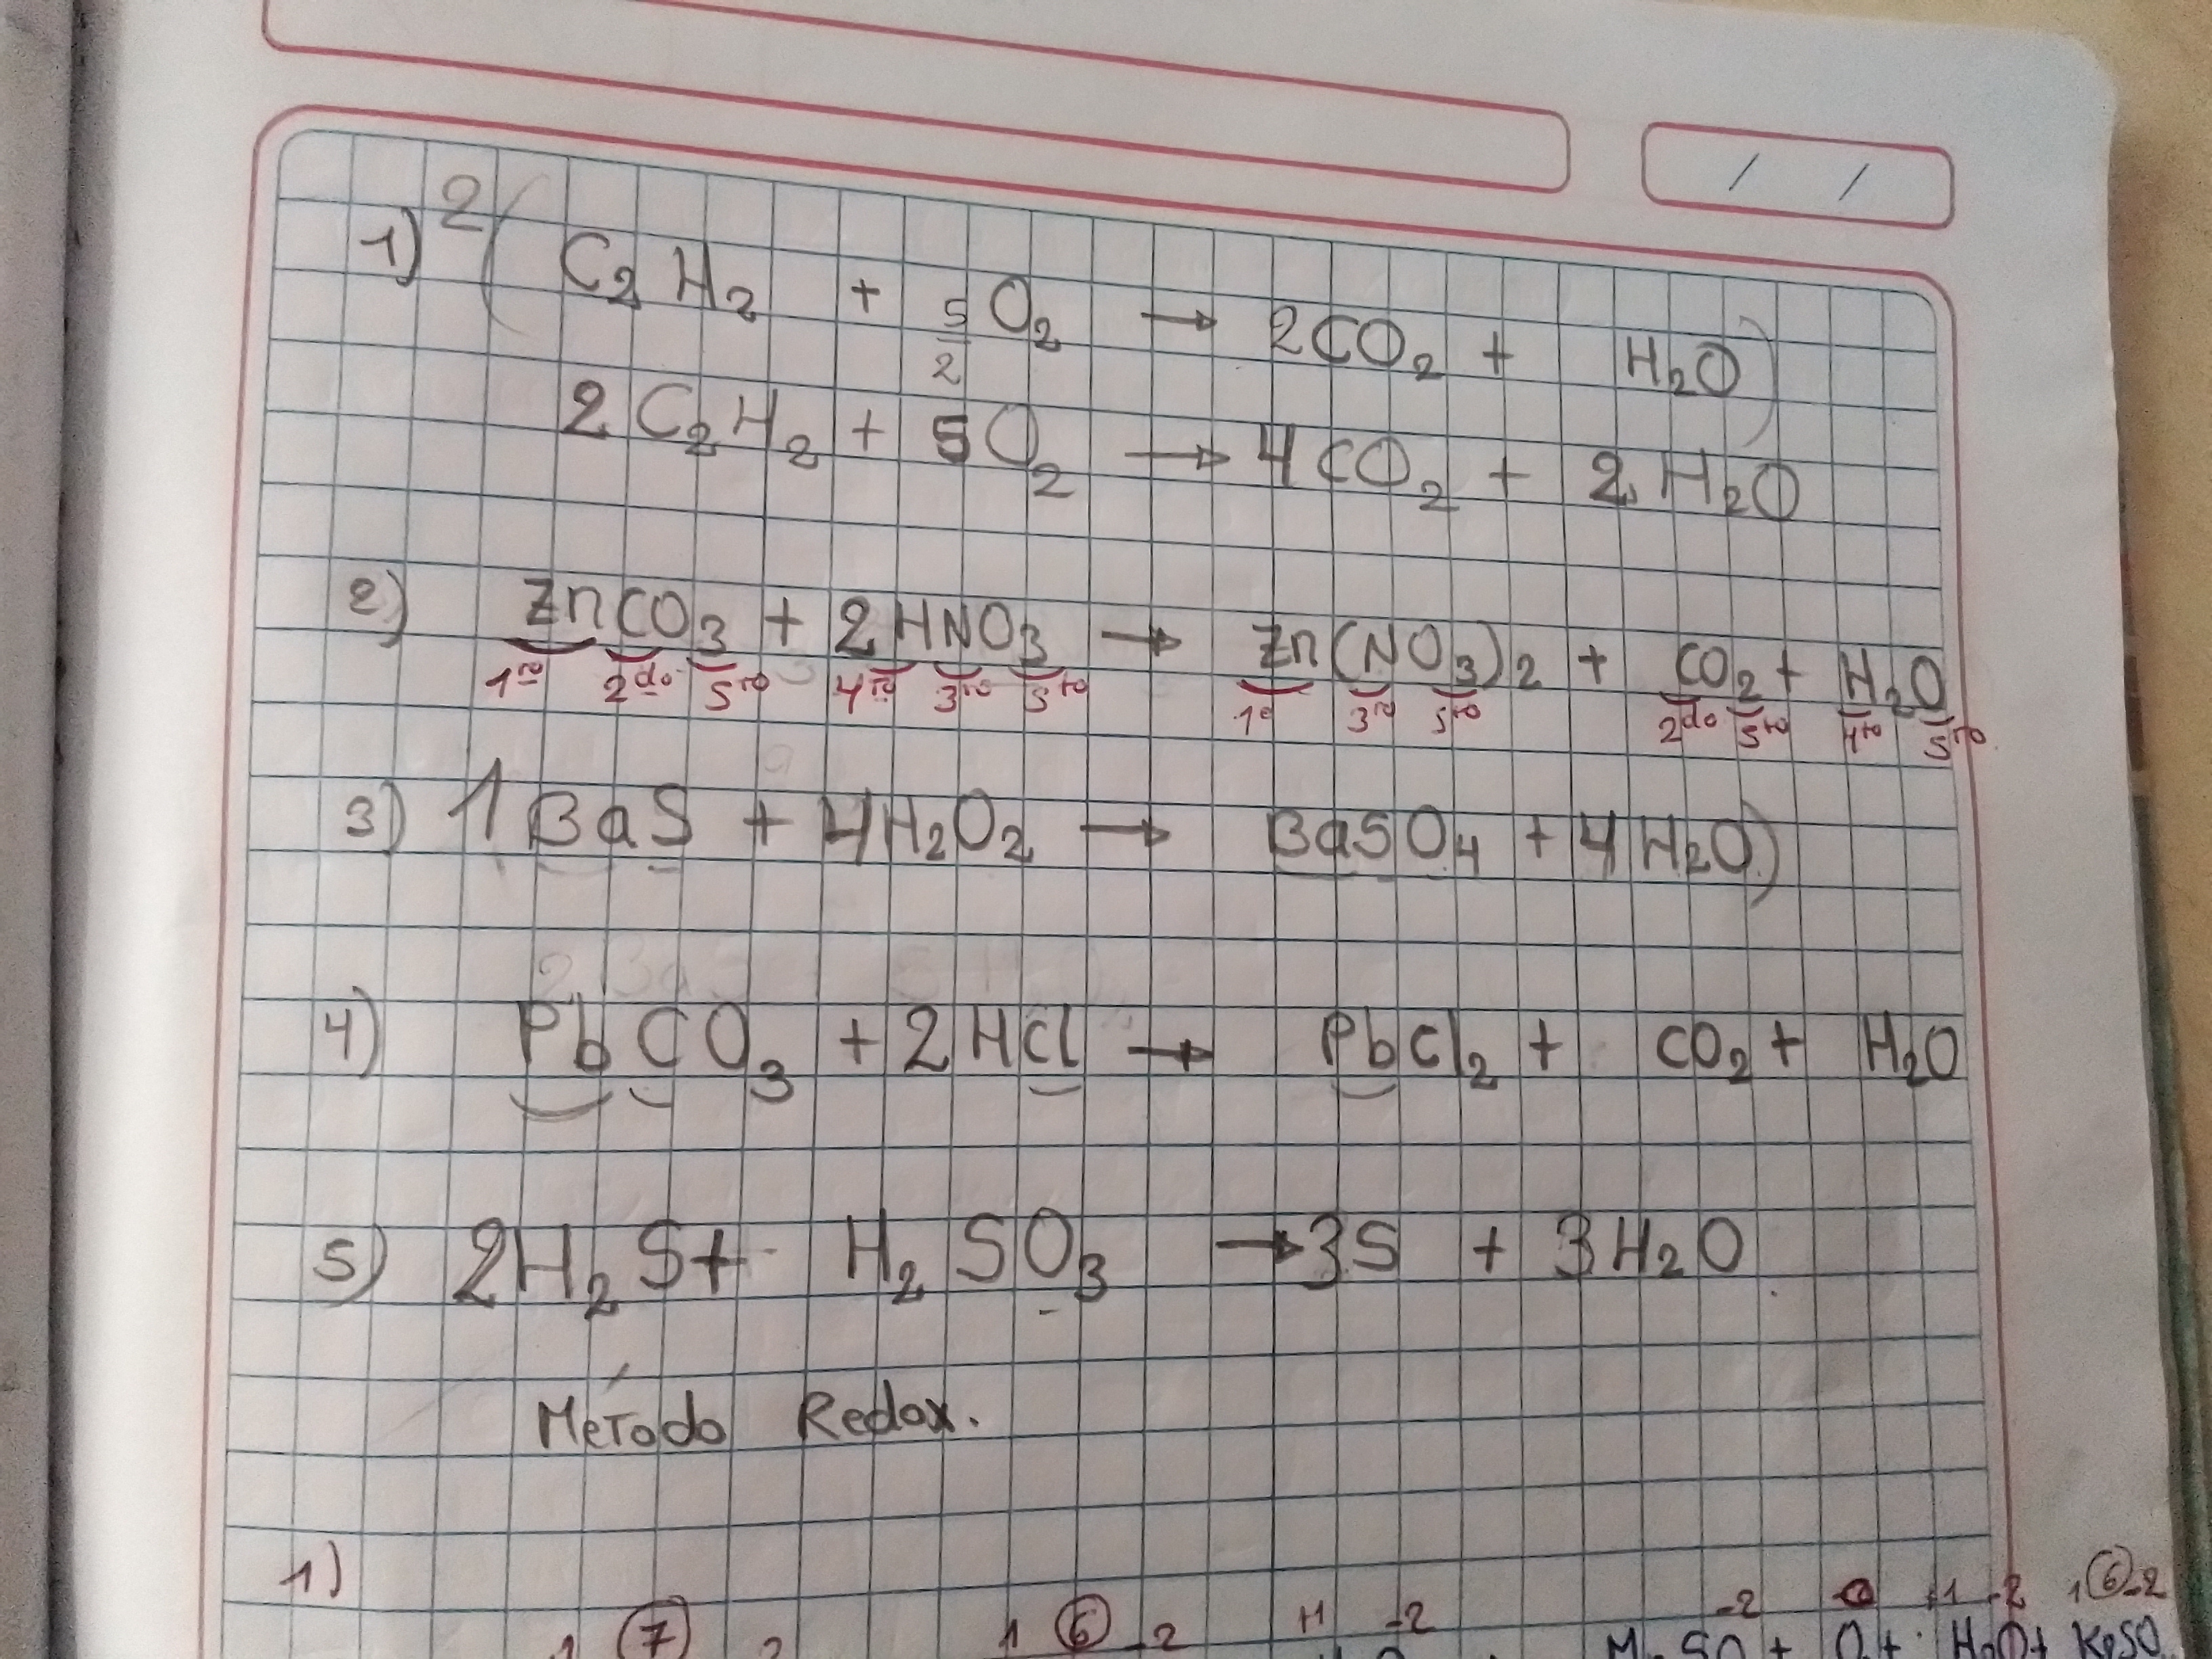 / /
1) 2( C₂H₂ + 5/2 O₂ → 2CO₂ + H₂O)
2C₂H₂ + 5O₂ → 4CO₂ + 2H₂O
2) ZnCO₃ + 2HNO₃ → Zn(NO₃)₂ + CO₂ + H₂O
1ro 2do 5to 4to 3ro 5to 1o 3ro 5to 2do 5to 4to 5to
3) 1BaS + 4H₂O₂ → BaSO₄ + 4H₂O)
4) PbCO₃ + 2HCl → PbCl₂ + CO₂ + H₂O
5) 2H₂S + H₂SO₃ → 3S + 3H₂O
Método Redox.
1)
1 7 2 1 6 -2 +1 -2 -2 0 +1 -2 1 6 -2